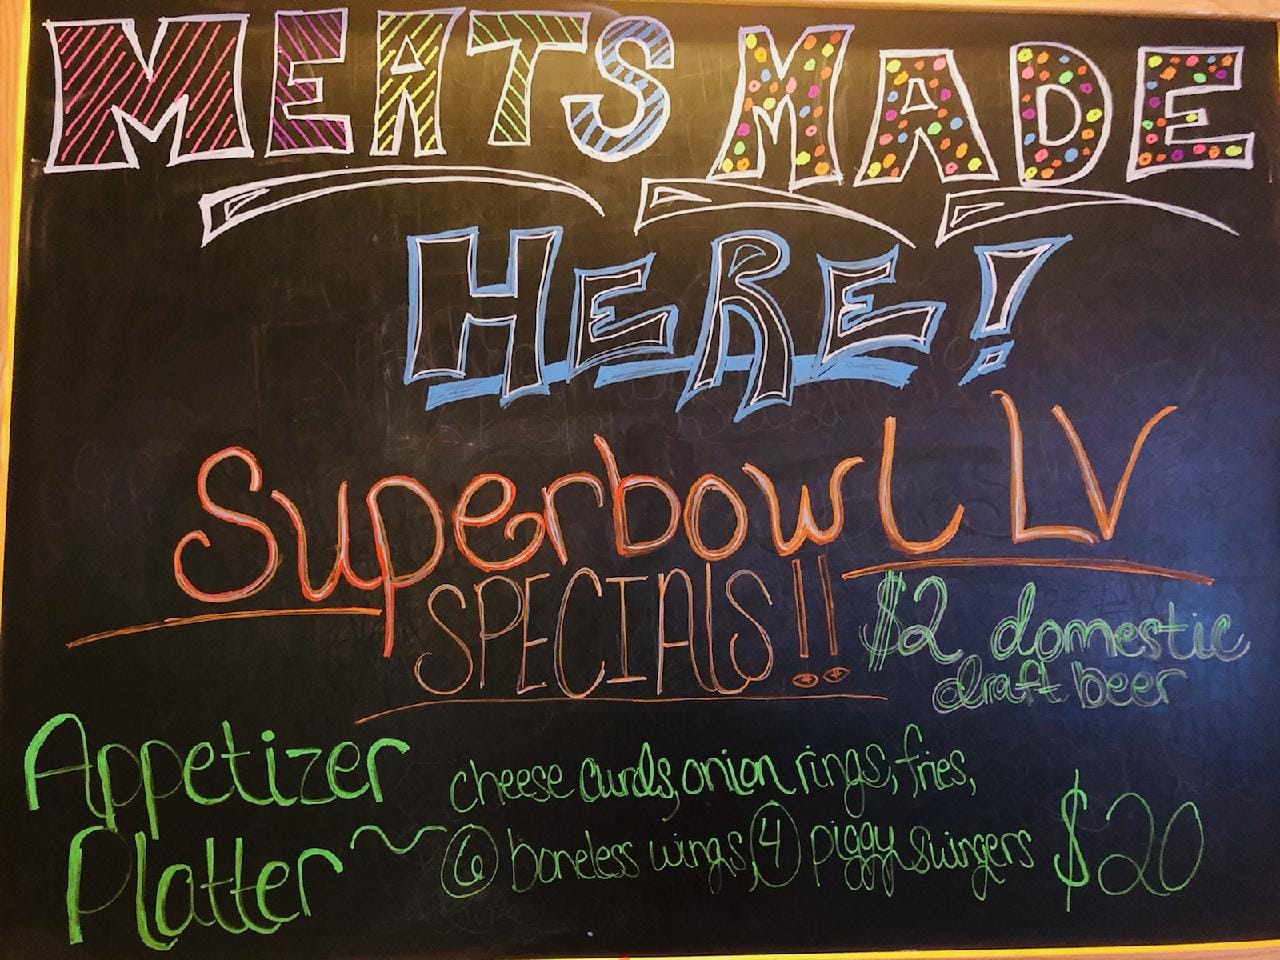 MEATS MADE
HERE!
Superbowl LV
SPECIALS!!
$2 domestic
draft beer
Appetizer
Platter ~
cheese curds, onion rings, fries,
6 boneless wings, 4 piggy swingers
$20